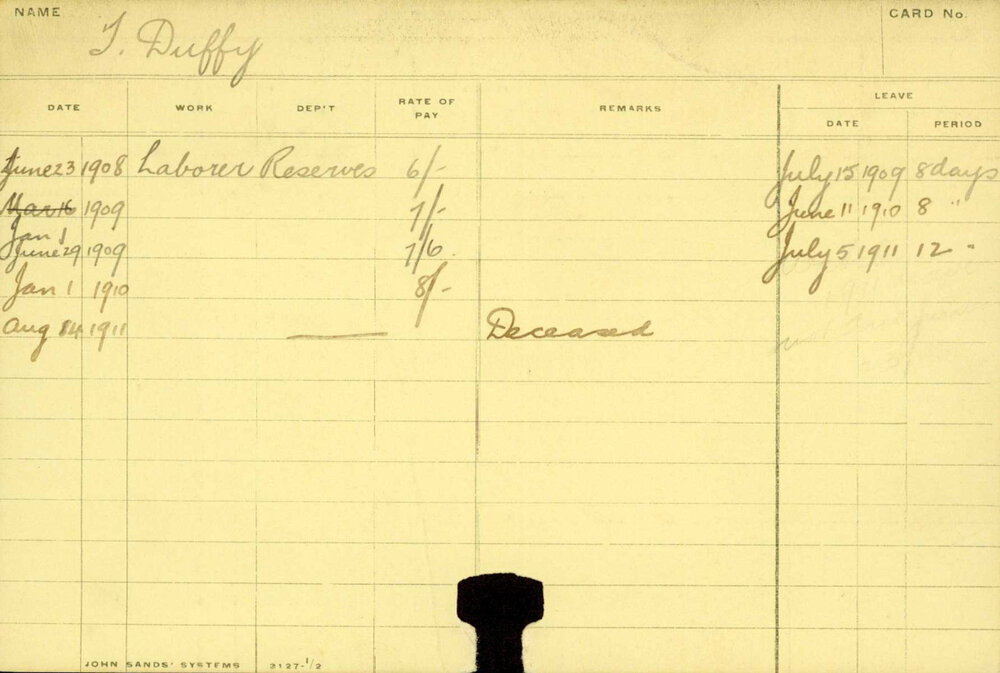 NAME
CARD No.
T. Duffy
DATE WORK DEP'T RATE OF PAY REMARKS LEAVE
DATE PERIOD
June 23 1908 Laborer Reserves 6/- July 15 1909 8 days
Mar 16 1909 7/- June 11 1910 8 "
Jan 1
June 29 1909 7/6 July 5 1911 12 "
Jan 1 1910 8/-
Aug 14 1911 — Deceased
JOHN SANDS' SYSTEMS 2127-1/2